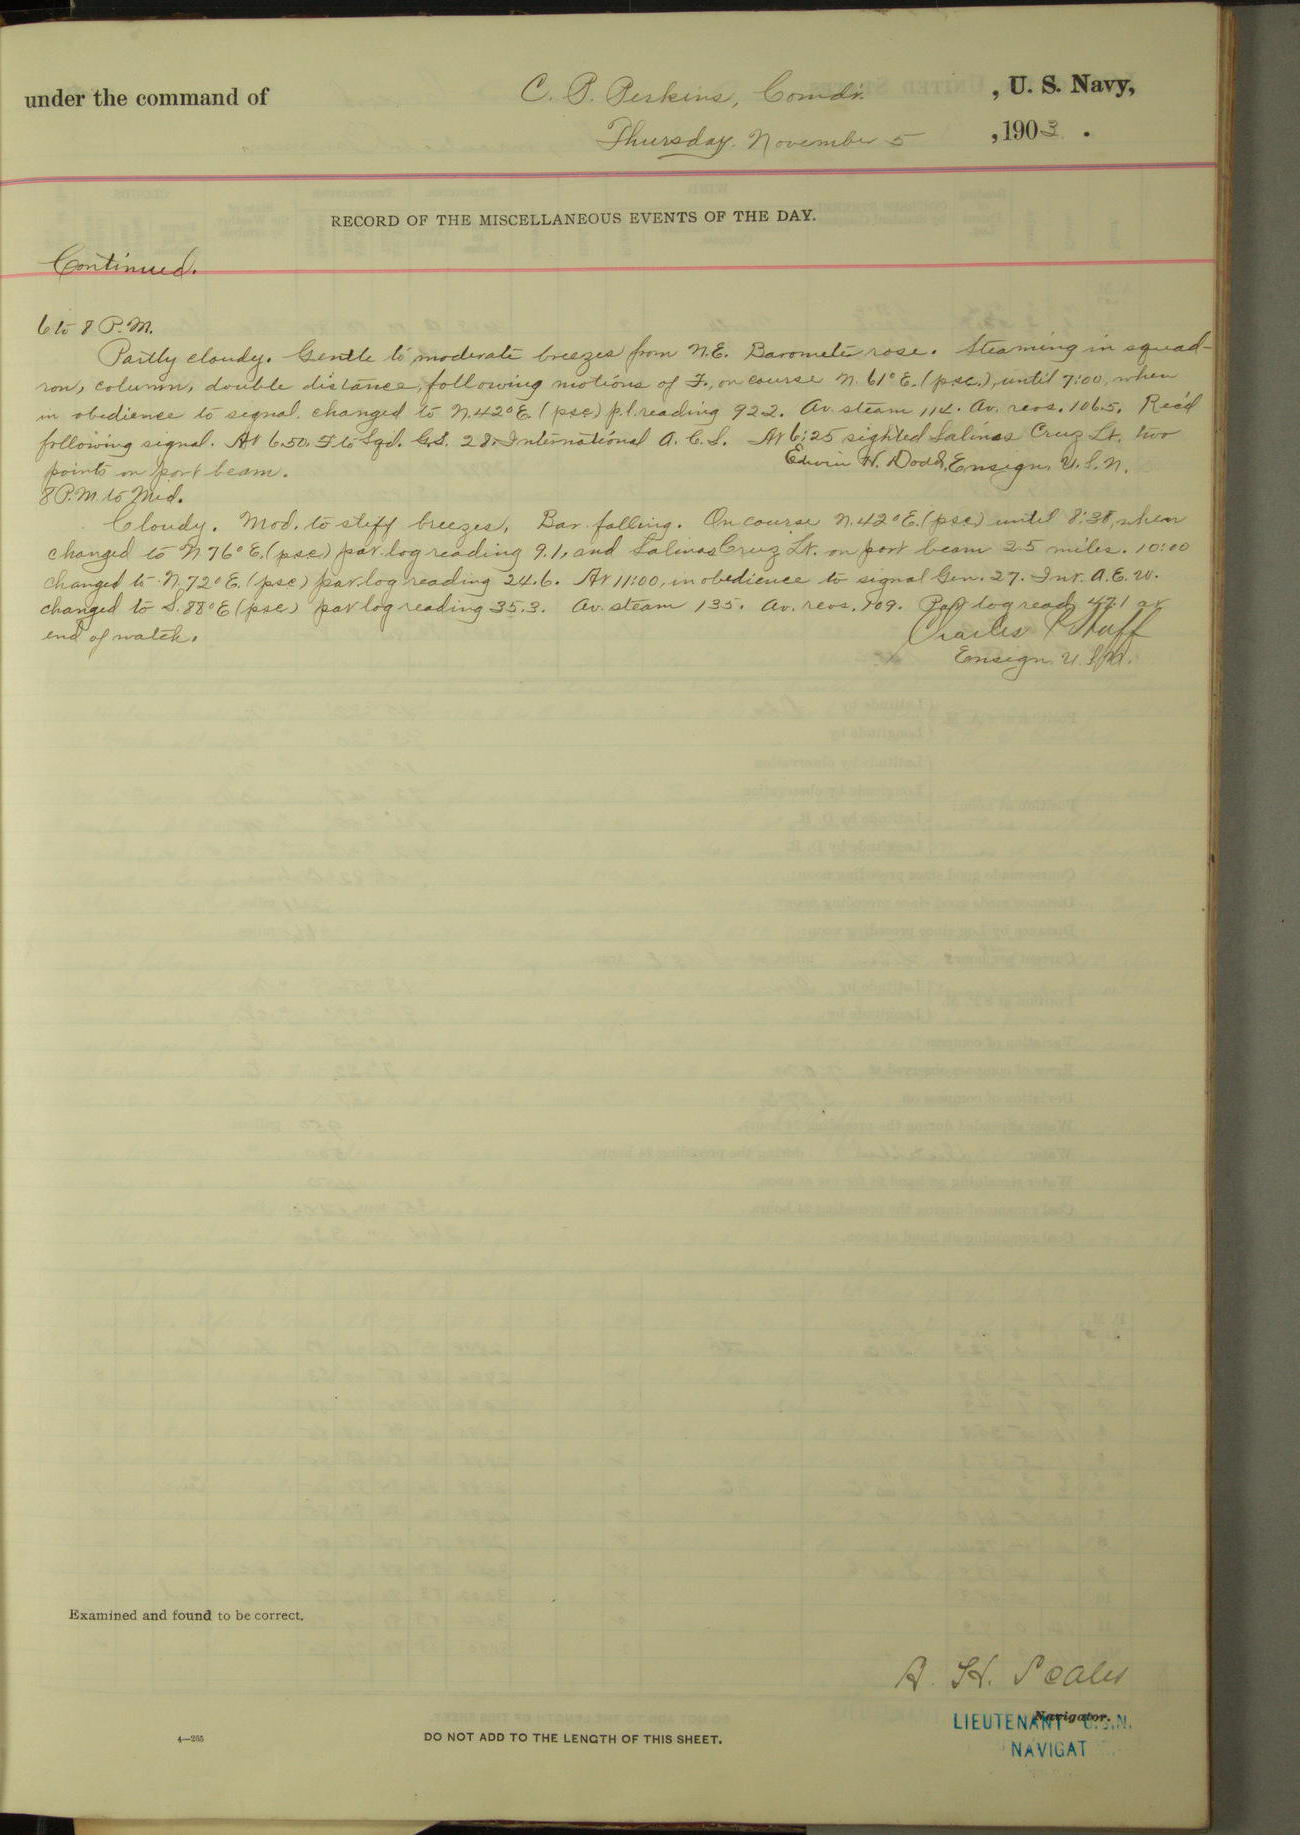 under the command of C. P. Perkins, Comdr. , U. S. Navy,
Thursday. November 5 , 1903 .
RECORD OF THE MISCELLANEOUS EVENTS OF THE DAY.
Continued.
6 to 8 P.M.
Partly cloudy. Gentle to moderate breezes from N.E. Barometer rose. Steaming in squad-
ron, column, double distance, following motions of F., on course N. 61° E. (p.s.c.), until 7:00, when
in obedience to signal changed to N.42°E. (psc) p.l. reading 92.2. Av. steam 114. Av. revs. 106.5. Rec'd
following signal. At 6.50. F to Sqd. G.S. 28. International A. C. S. At 6:25 sighted Salinas Cruz Lt. two
points on port beam. Edwin H. Dodd, Ensign, U.S.N.
8 P.M. to Mid.
Cloudy. Mod. to stiff breezes. Bar. falling. On course N.42°E. (psc) until 8:38, when
changed to N.76°E. (psc) pat. log reading 9.1, and Salinas Cruz Lt. on port beam 2.5 miles. 10:00
changed to N.72°E. (psc) pat. log reading 24.6. At 11:00, in obedience to signal Gen. 27. Int. A.E.W.
changed to S.88°E (psc) pat log reading 35.3. Av. steam 135. Av. revs. 109. Pat log read 47.1 at
end of watch. Charles Huff
Ensign U.S.N.
Examined and found to be correct.
A. H. Scales
Navigator.
LIEUTENANT U.S.N.
NAVIGAT
4—265
DO NOT ADD TO THE LENGTH OF THIS SHEET.